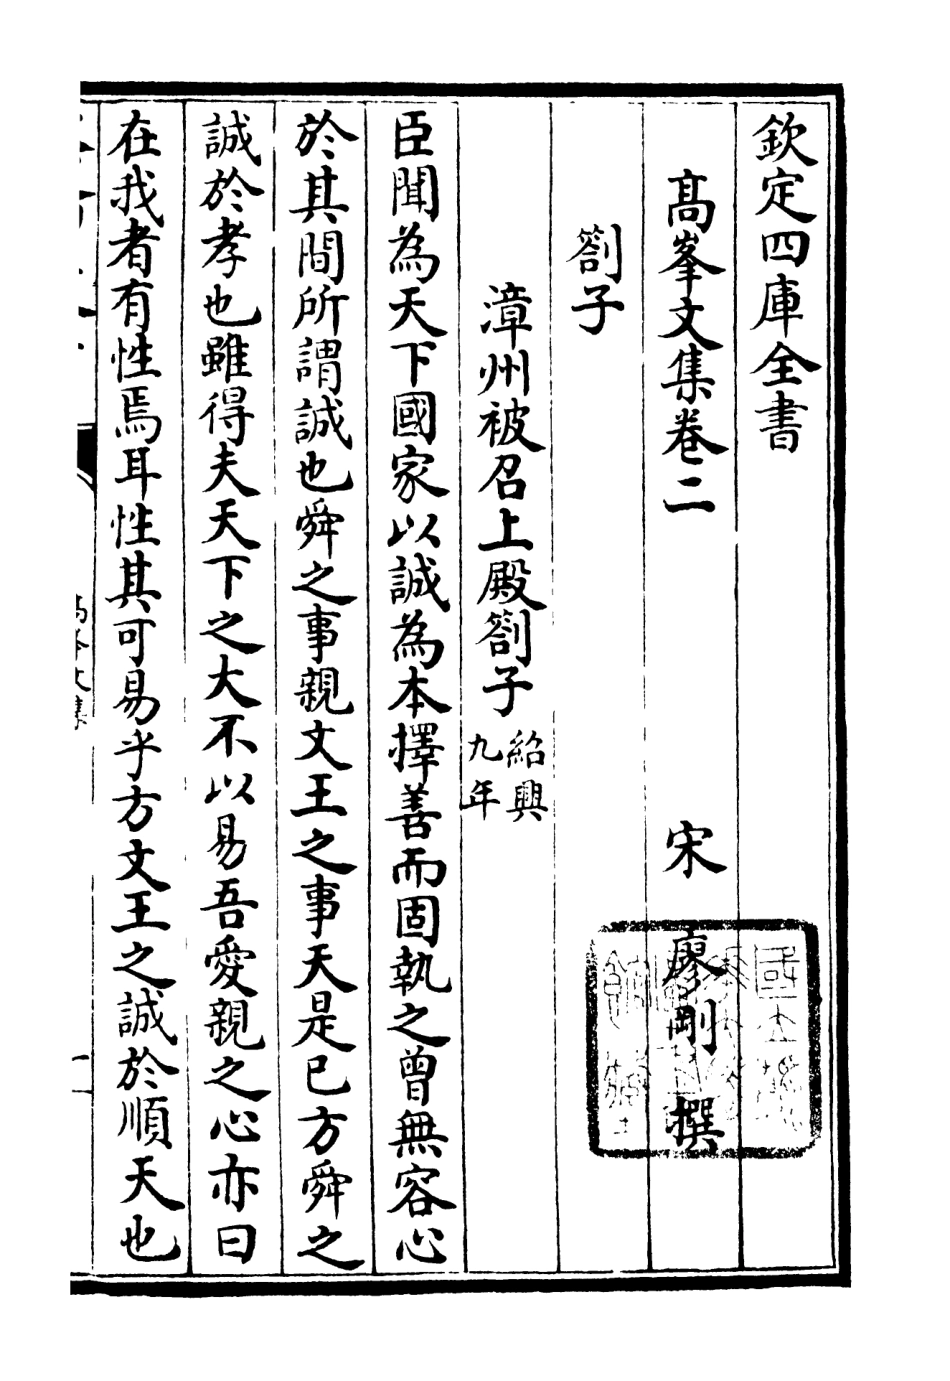 欽定四庫全書
髙峯文集卷二
宋 廖剛 撰
劄子
漳州被召上殿劄子紹興九年
臣聞為天下國家以誠為本擇善而固執之曾無容心
於其間所謂誠也舜之事親文王之事天是已方舜之
誠於孝也雖得夫天下之大不以易吾愛親之心亦曰
在我者有性焉耳性其可易乎方文王之誠於順天也